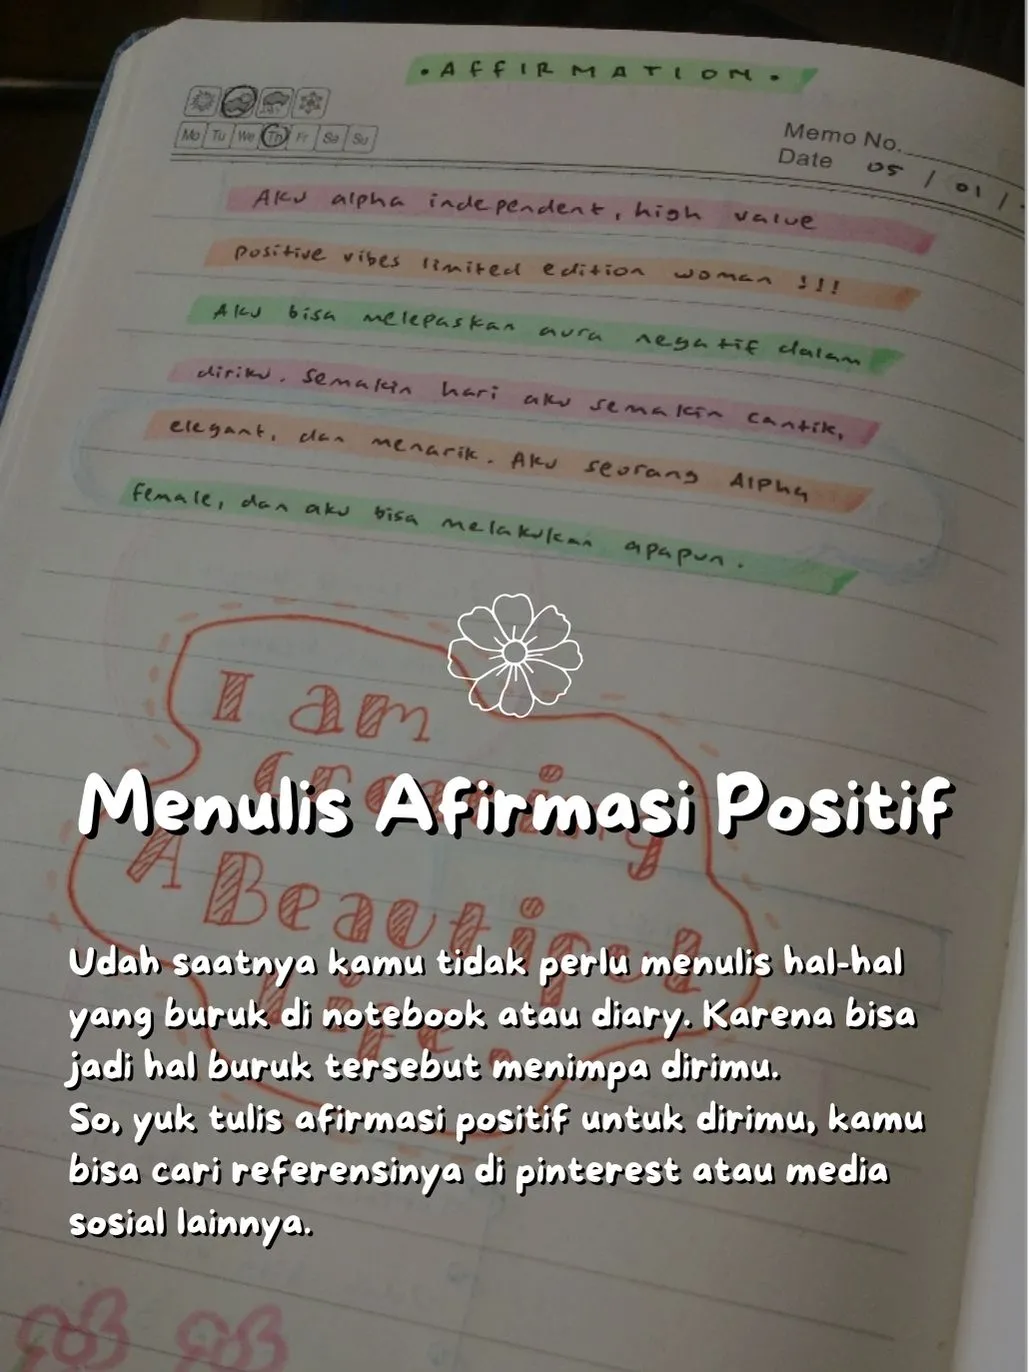 • AFFIRMATION •
Mo Tu We Th Fr Sa Su
Memo No.
Date 05 / 01 /
Aku alpha independent, high value
positive vibes limited edition woman !!!
Aku bisa melepaskan aura negatif dalam
diriku. Semakin hari aku semakin cantik,
elegant, dan menarik. Aku seorang Alpha
female, dan aku bisa melakukan apapun.
I am
Menulis Afirmasi Positif
A Beautiful
Life.
Udah saatnya kamu tidak perlu menulis hal-hal
yang buruk di notebook atau diary. Karena bisa
jadi hal buruk tersebut menimpa dirimu.
So, yuk tulis afirmasi positif untuk dirimu, kamu
bisa cari referensinya di pinterest atau media
sosial lainnya.